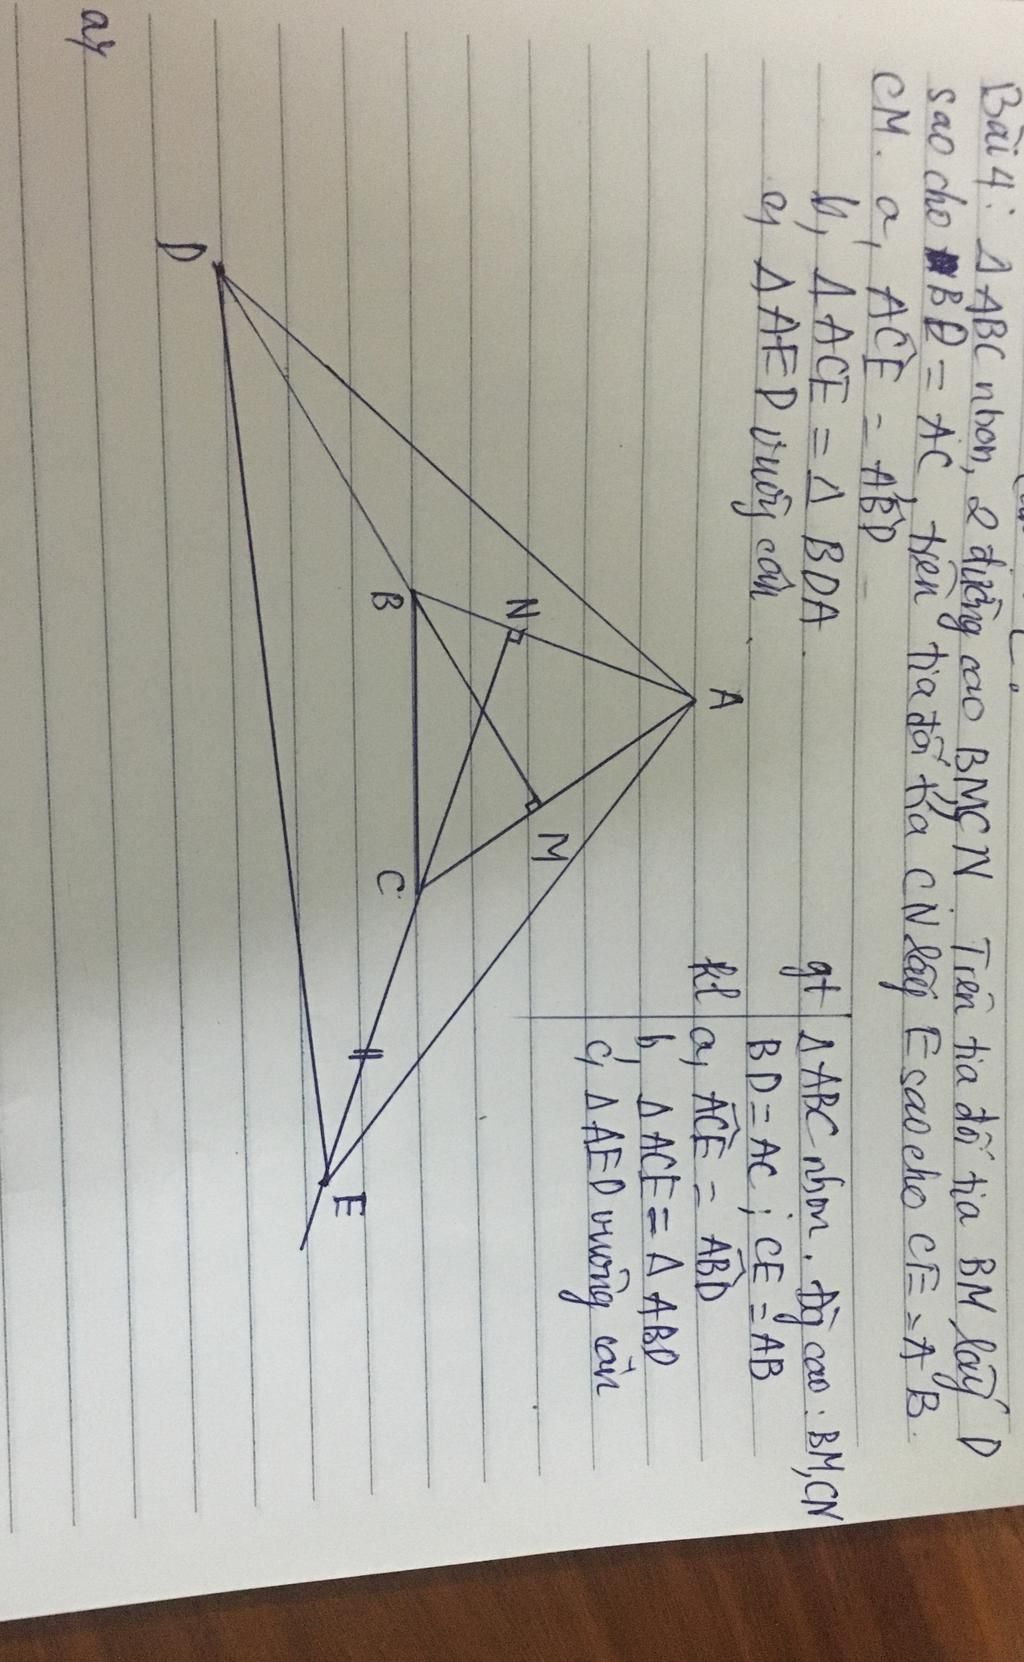 Bài 4: Δ ABC nhọn, 2 đường cao BM, CN. Trên tia đối tia BM lấy D
sao cho BD = AC trên tia đối tia CN lấy E sao cho CE = AB.
CM. a, ACE = ABD
b, Δ ACE = Δ BDA
c, Δ AED vuông cân
gt Δ ABC nhọn. Đg cao: BM, CN
BD = AC; CE = AB
kl a, ACE = ABD
b, Δ ACE = Δ ABD
c, Δ AED vuông cân
A
N
M
B
C
D
E
a,